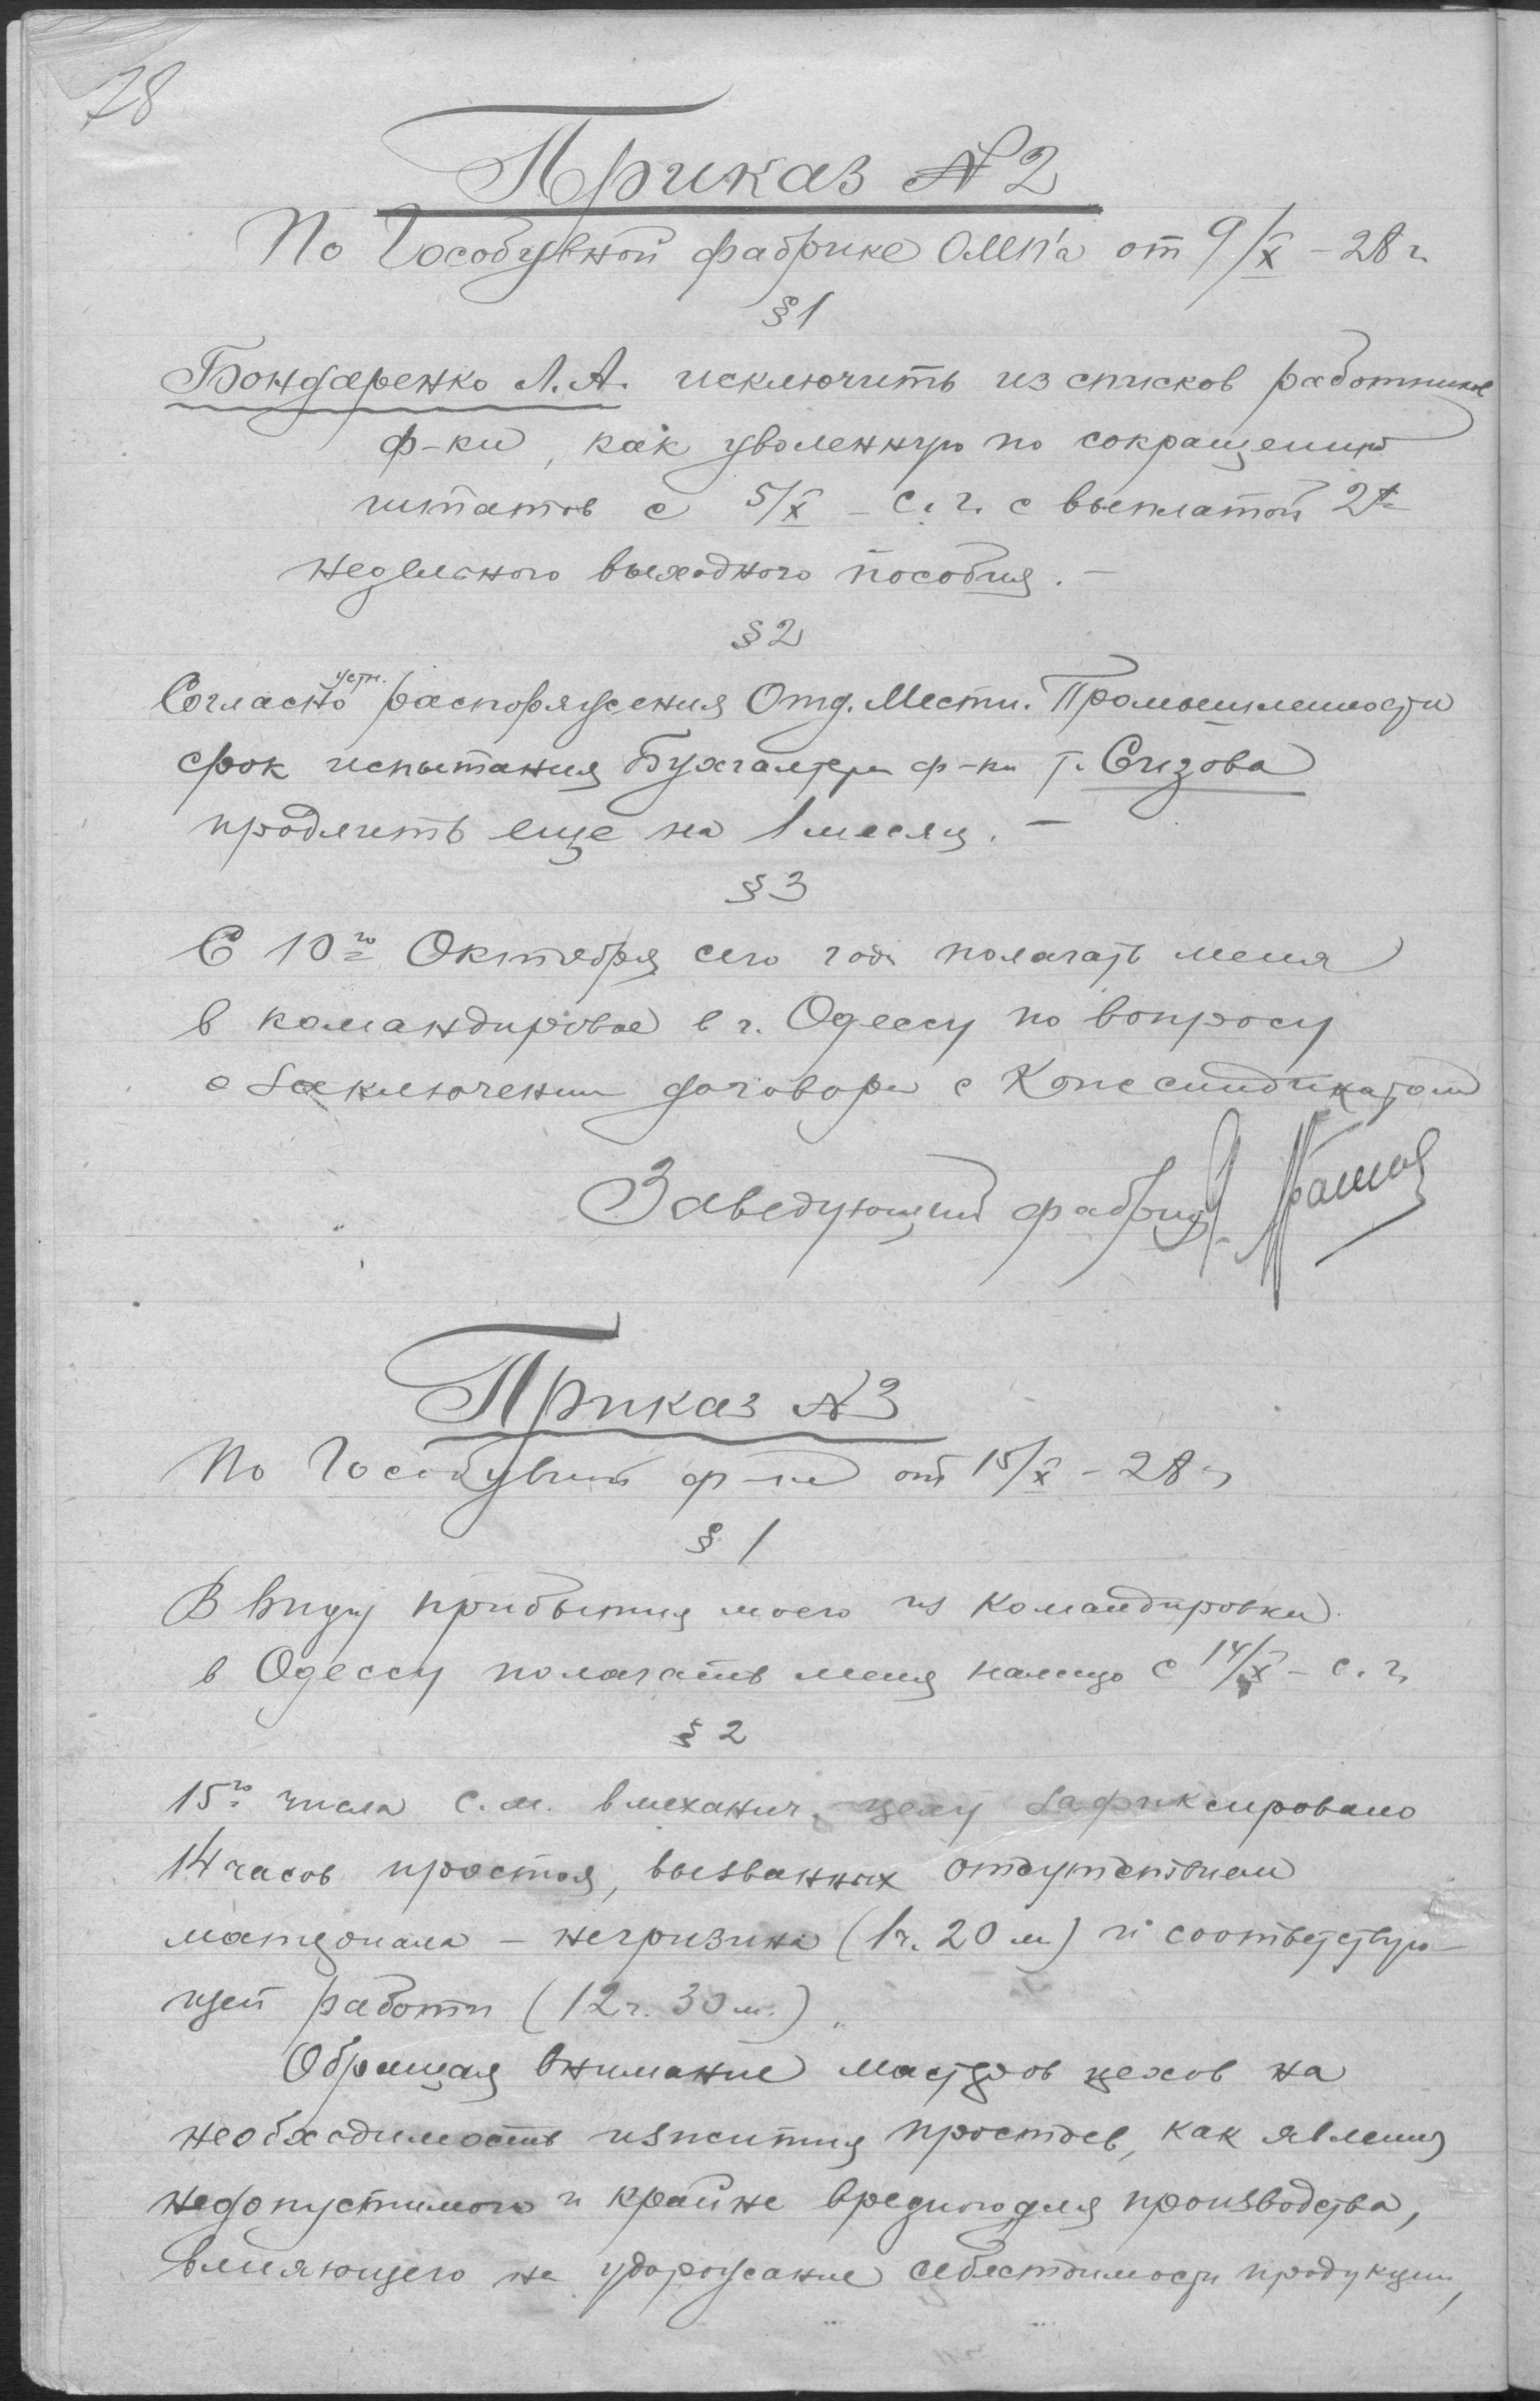 78
Приказ №2
По Гособувной фабрике ОМП'а от 9/X – 28 г.
§ 1
Бондаренко Л. А. исключить из списков работников
ф-ки, как уволенную по сокращению
штатов с 5/X – с. г. с выплатой 2х
недельного выходного пособия. –
§ 2
Согласно устн. распоряжения Отд. Местн. Промышленности
срок испытания Бухгалтера ф-ки т. Сизова
продлить еще на 1 месяц. –
§ 3
С 10го Октября сего года полагать меня
в командировке в г. Одессу по вопросу
о заключении договора с Кожсиндикатом
Заведующий фабрикой
Приказ №3
По Гособувной ф-ке от 15/X – 28 г.
§ 1
В виду прибытия моего из командировки
в Одессу полагать меня налицо с 14/X – с. г.
§ 2
15го числа с. м. в механич. цеху зафиксировано
14 часов простоя, вызванных отсутствием
материала – негризина (1 ч. 20 м) и соответствую-
щей работы (12 ч. 30 м.).
Обращая внимание мастеров цехов на
необходимость изжития простоев, как явления
недопустимого и крайне вредного для производства,
влияющего на удорожание себестоимости продукции,